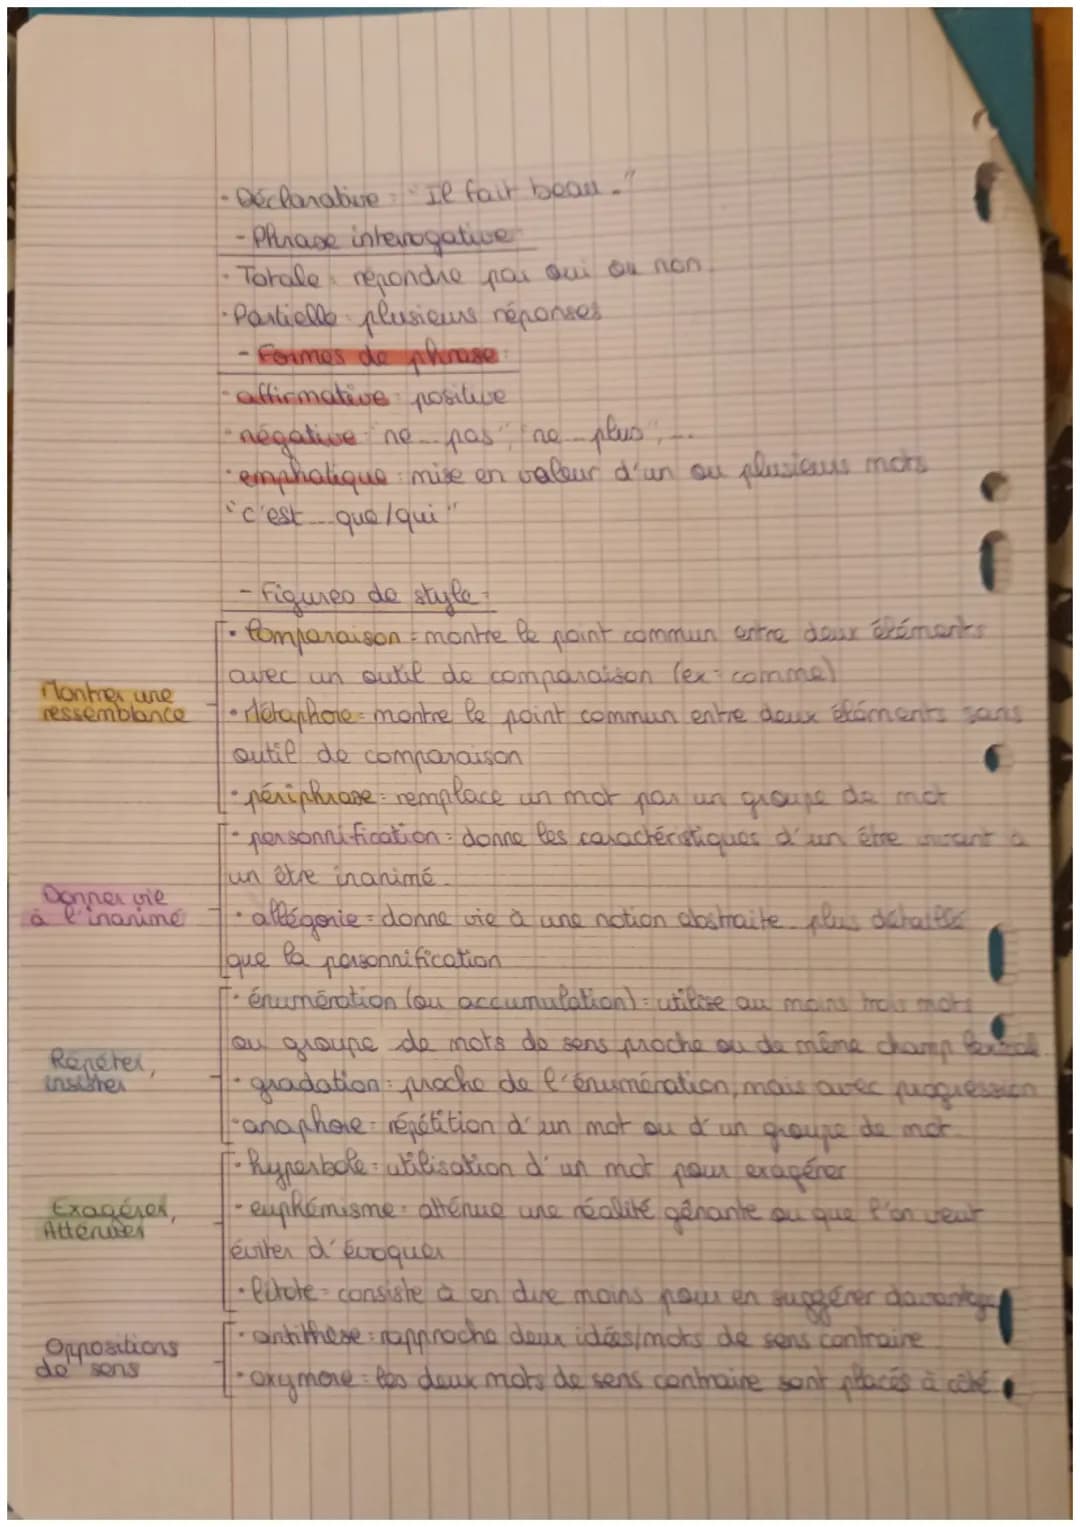 · Déclarative : "Il fait beau."
- Phrase interrogative
· Totale : répondre par oui ou non.
· Partielle : plusieurs réponses
- Formes de phrase :
· affirmative : positive
· négative : "ne... pas", "ne... plus", ...
· emphatique : mise en valeur d'un ou plusieurs mots
"c'est... que/qui"
- Figures de style :
· Comparaison = montre le point commun entre deux éléments
avec un outil de comparaison (ex : comme)
Montrer une
ressemblance
· Métaphore = montre le point commun entre deux éléments sans
outil de comparaison
· périphrase = remplace un mot par un groupe de mot
· personnification = donne les caractéristiques d'un être vivant à
un être inanimé.
Donner vie
à l'inanimé
· allégorie = donne vie à une notion abstraite. plus détaillée
que la personnification
· énumération (ou accumulation) = utilise au moins trois mots
ou groupe de mots de sens proche ou de même champ lexical.
Répéter,
insister
· gradation : proche de l'énumération, mais avec progression
· anaphore = répétition d'un mot ou d'un groupe de mot.
· hyperbole = utilisation d'un mot pour exagérer
Exagérer,
Atténuer
· euphémisme = atténue une réalité gênante ou que l'on veut
éviter d'évoquer
· litote = consiste à en dire moins pour en suggérer davantage
Oppositions
de sens
· antithèse : rapproche deux idées/mots de sens contraire.
· oxymore = les deux mots de sens contraire sont placés à côté.